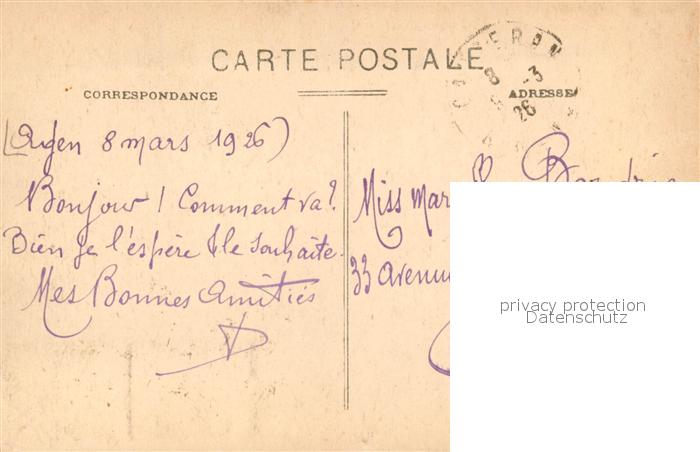 CARTE POSTALE
CORRESPONDANCE
ADRESSE
8 -3
26
(Agen 8 mars 1926)
Bonjour ! Comment va ?
Bien je l'espère & le souhaite.
Mes Bonnes Amitiés
Miss Mar
33 Avenu
privacy protection
Datenschutz